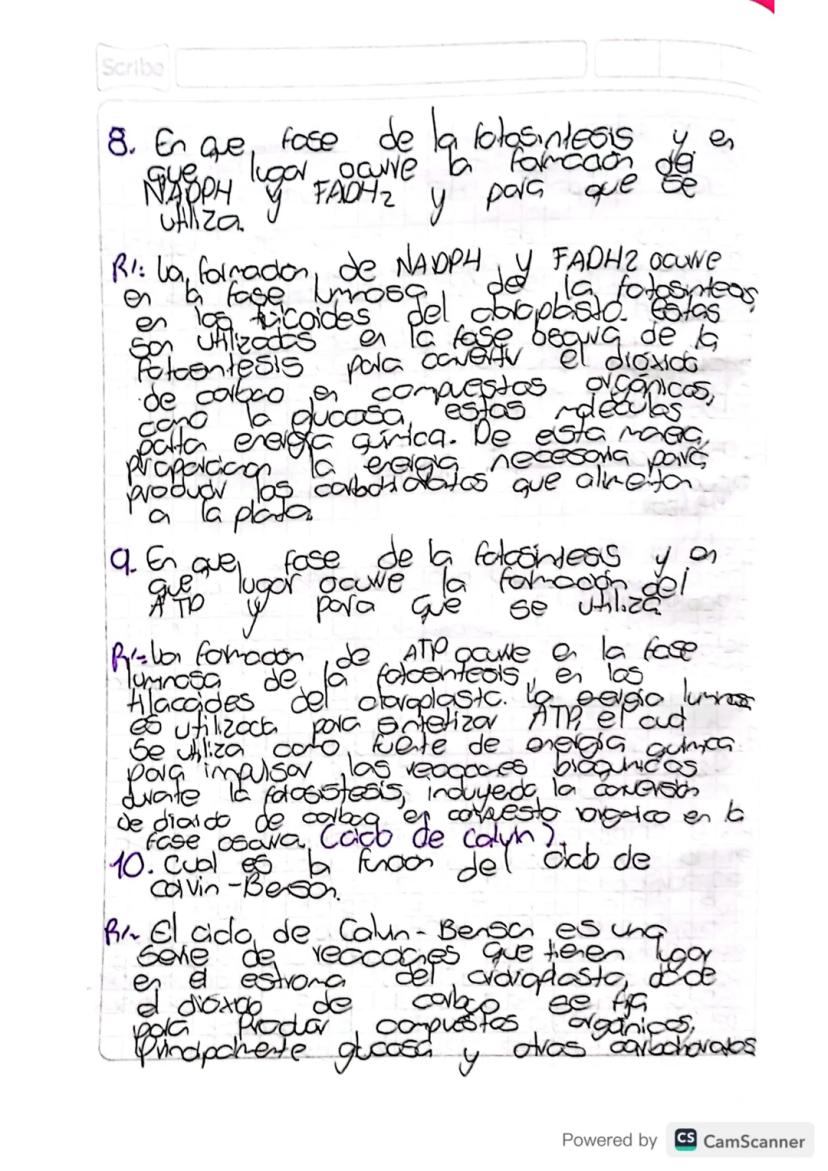 Scribe
8. En que fase de la fotosintesis y en
que lugar ocurre la formación del
NADPH y FADH2 y para que se
utiliza.
R/: La formacion de NADPH y FADH2 ocurre
en la fase luminosa de la fotosintesis,
en los tilcoides del cloroplasto. Estas
son utilizadas en la fase oscura de la
fotosintesis para convertir el dióxido
de carbono en compuestos orgánicos,
como la glucosa, estas moleculas
energia química. De esta manera,
proporcionan la energia necesaria para
producir los carbohidratos que alimentan
a la planta.
9. En que fase de la fotosintesis y en
que lugar ocurre la formación del
ATP y para que se utiliza
R/= La formacion de ATP ocurre en la fase
luminosa de la fotosintesis, en los
tilacoides del cloroplasto. La energia luminosa
es utilizada para sintetizar ATP, el cual
se utiliza como fuente de energia quimica
para impulsar las reacciones bioquimicas
durante la fotosintesis, incluyendo la conversión
de dioxido de carbono en compuesto organico en la
fase oscura. (Ciclo de Calvin).
10. Cual es la funcion del ciclo de
calvin - Benson.
R/~ El ciclo de Calvin - Benson es una
serie de reacciones que tienen lugar
en el estroma del cloroplasto, donde
el dioxido de carbono se fija
para producir compuestos orgánicos,
principalmente glucosa y otros carbohidratos
Powered by CS CamScanner